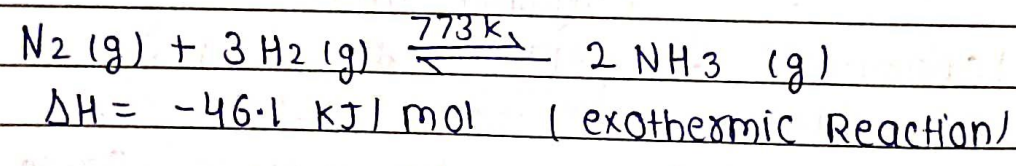 N2 (g) + 3 H2 (g) 773 K ⇌ 2 NH3 (g)
ΔH = -46.1 KJ / mol ( exothermic Reaction)